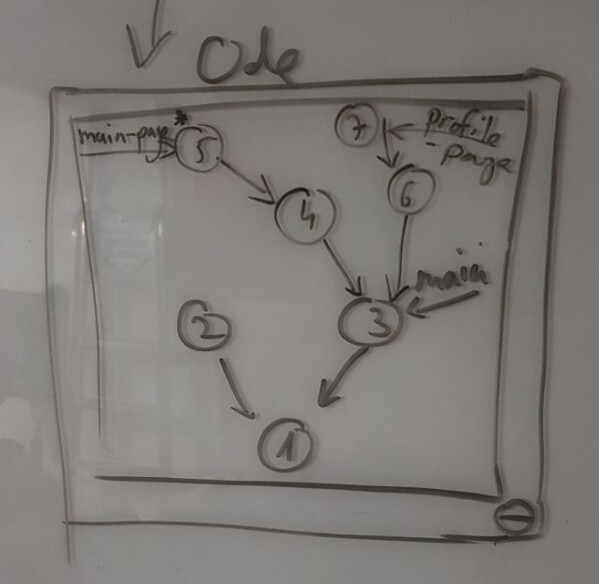 Ode
main-page*
5
7
profile
-page
6
4
main
2
3
1